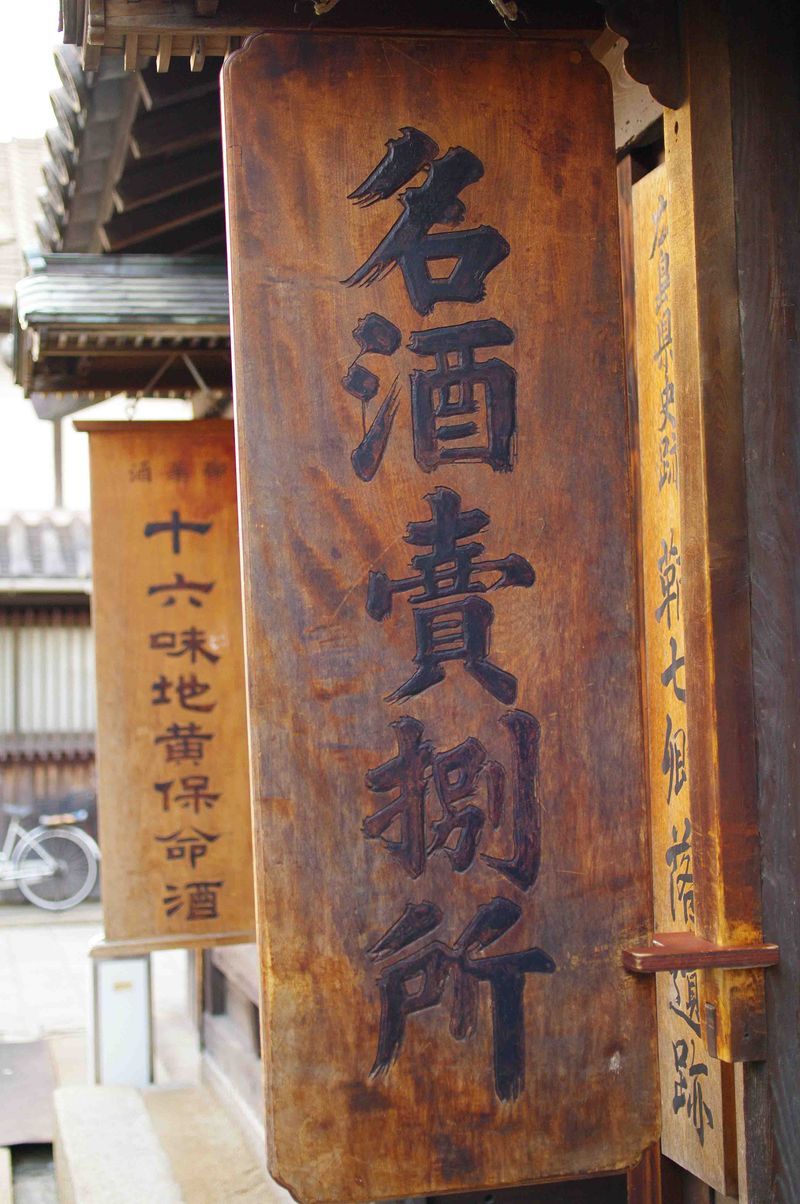 広島県史跡 鞆七卿落遺跡
名酒賣捌所
十六味地黄保命酒